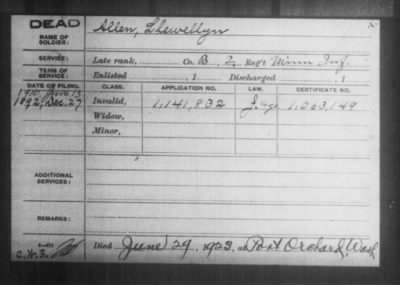 DEAD
NAME OF SOLDIER: Allen, Llewellyn
SERVICE: Late rank, Co. B, 2 Reg't Minn Inf.
TERM OF SERVICE: Enlisted , 1 Discharged , 1
DATE OF FILING. CLASS. APPLICATION NO. LAW. CERTIFICATE NO.
1910, June 13
1892, Dec. 27 Invalid, 1,141,932 1,063,149
Widow,
Minor,
ADDITIONAL SERVICES:
REMARKS:
Died June 29, 1923, at Port Orchard, Wash